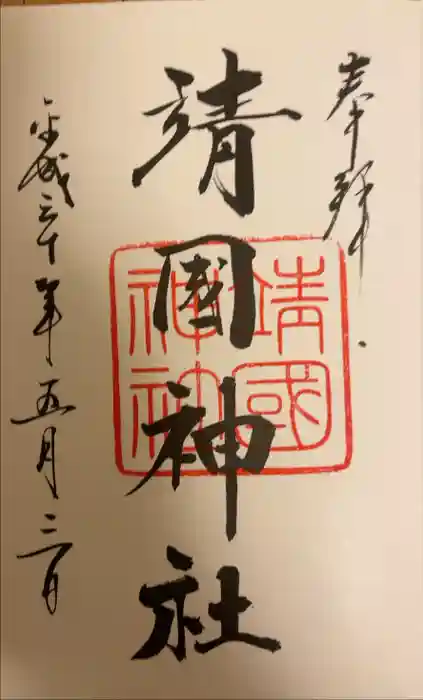 奉拝
靖國神社
靖國
神社
平成三十年五月三日